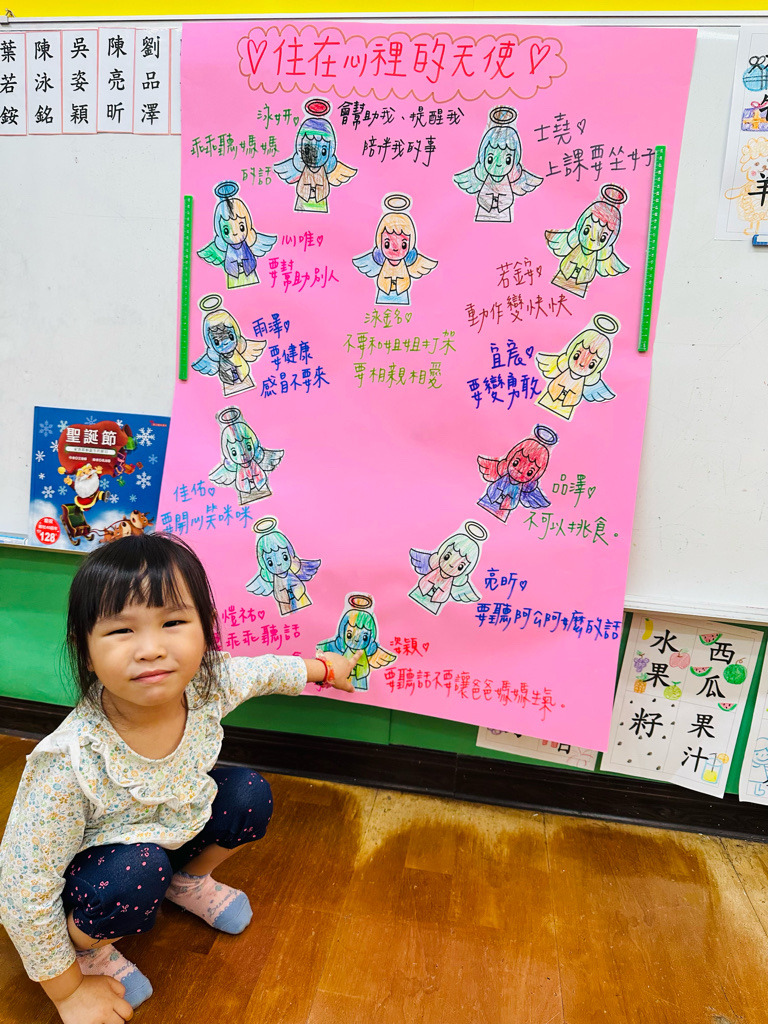 葉若銨
陳泳銘
吳姿穎
陳亮昕
劉品澤
♡住在心裡的天使♡
會幫助我、提醒我
陪伴我的事
泳妍♡
乖乖聽媽媽
的話
士堯♡
上課要坐好
心唯♡
要幫助別人
若銨♡
動作變快快
泳銘♡
不要和姐姐打架
要相親相愛
雨澤♡
要健康
感冒不要來
宜宸♡
要變勇敢
佳佑♡
要開心笑咪咪
品澤♡
不可以挑食。
愷祐♡
乖乖聽話
亮昕♡
要聽阿公阿嬤的話
姿穎♡
要聽話不要讓爸爸媽媽生氣。
聖誕節
128
羊
水果
西瓜
籽
果汁